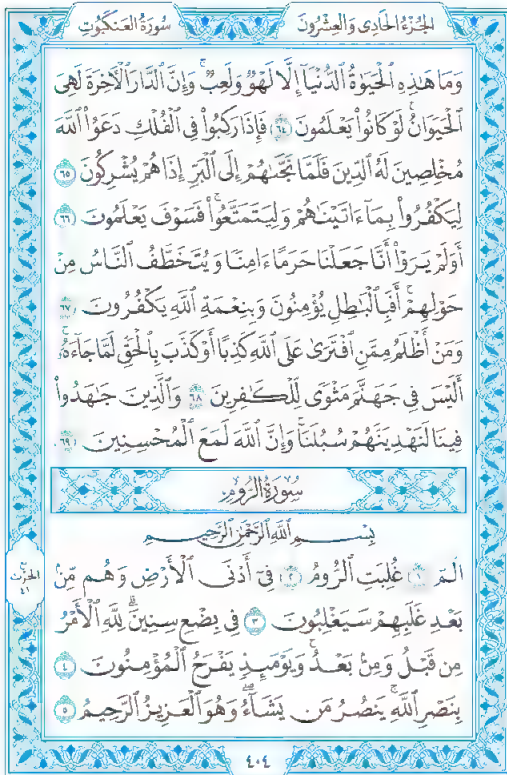 الجُزْءُ الحَادِى وَالعِشْرُونَ
سُورَةُ العَنكَبُوتِ
وَمَا هَٰذِهِ ٱلْحَيَوٰةُ ٱلدُّنْيَآ إِلَّا لَهْوٌ وَلَعِبٌ ۚ وَإِنَّ ٱلدَّارَ ٱلْأٓخِرَةَ لَهِىَ
ٱلْحَيَوَانُ ۚ لَوْ كَانُوا۟ يَعْلَمُونَ ٦٤ فَإِذَا رَكِبُوا۟ فِى ٱلْفُلْكِ دَعَوُا۟ ٱللَّهَ
مُخْلِصِينَ لَهُ ٱلدِّينَ فَلَمَّا نَجَّىٰهُمْ إِلَى ٱلْبَرِّ إِذَا هُمْ يُشْرِكُونَ ٦٥
لِيَكْفُرُوا۟ بِمَآ ءَاتَيْنَٰهُمْ وَلِيَتَمَتَّعُوا۟ ۖ فَسَوْفَ يَعْلَمُونَ ٦٦
أَوَلَمْ يَرَوْا۟ أَنَّا جَعَلْنَا حَرَمًا ءَامِنًا وَيُتَخَطَّفُ ٱلنَّاسُ مِنْ
حَوْلِهِمْ ۚ أَفَبِٱلْبَٰطِلِ يُؤْمِنُونَ وَبِنِعْمَةِ ٱللَّهِ يَكْفُرُونَ ٦٧
وَمَنْ أَظْلَمُ مِمَّنِ ٱفْتَرَىٰ عَلَى ٱللَّهِ كَذِبًا أَوْ كَذَّبَ بِٱلْحَقِّ لَمَّا جَآءَهُۥٓ ۚ
أَلَيْسَ فِى جَهَنَّمَ مَثْوًى لِّلْكَٰفِرِينَ ٦٨ وَٱلَّذِينَ جَٰهَدُوا۟
فِينَا لَنَهْدِيَنَّهُمْ سُبُلَنَا ۚ وَإِنَّ ٱللَّهَ لَمَعَ ٱلْمُحْسِنِينَ ٦٩
سُورَةُ الرُّومِ
بِسْمِ ٱللَّهِ ٱلرَّحْمَٰنِ ٱلرَّحِيمِ
الٓمٓ ١ غُلِبَتِ ٱلرُّومُ ٢ فِىٓ أَدْنَى ٱلْأَرْضِ وَهُم مِّنۢ
بَعْدِ غَلَبِهِمْ سَيَغْلِبُونَ ٣ فِى بِضْعِ سِنِينَ ۗ لِلَّهِ ٱلْأَمْرُ
مِن قَبْلُ وَمِنۢ بَعْدُ ۚ وَيَوْمَئِذٍ يَفْرَحُ ٱلْمُؤْمِنُونَ ٤
بِنَصْرِ ٱللَّهِ ۚ يَنصُرُ مَن يَشَآءُ ۖ وَهُوَ ٱلْعَزِيزُ ٱلرَّحِيمُ ٥
الحِزْب
٤١
٤٠٤